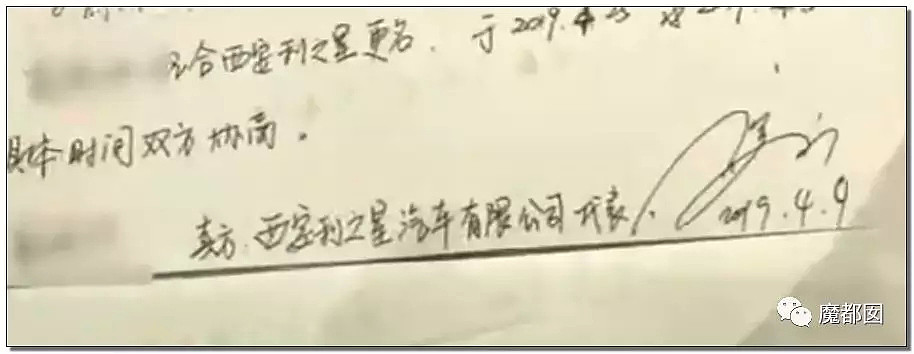 合西安利之星更名. 于2019.4
具体时间双方协商。
卖方:西安利之星汽车有限公司代表. 2019.4.9
魔都囡